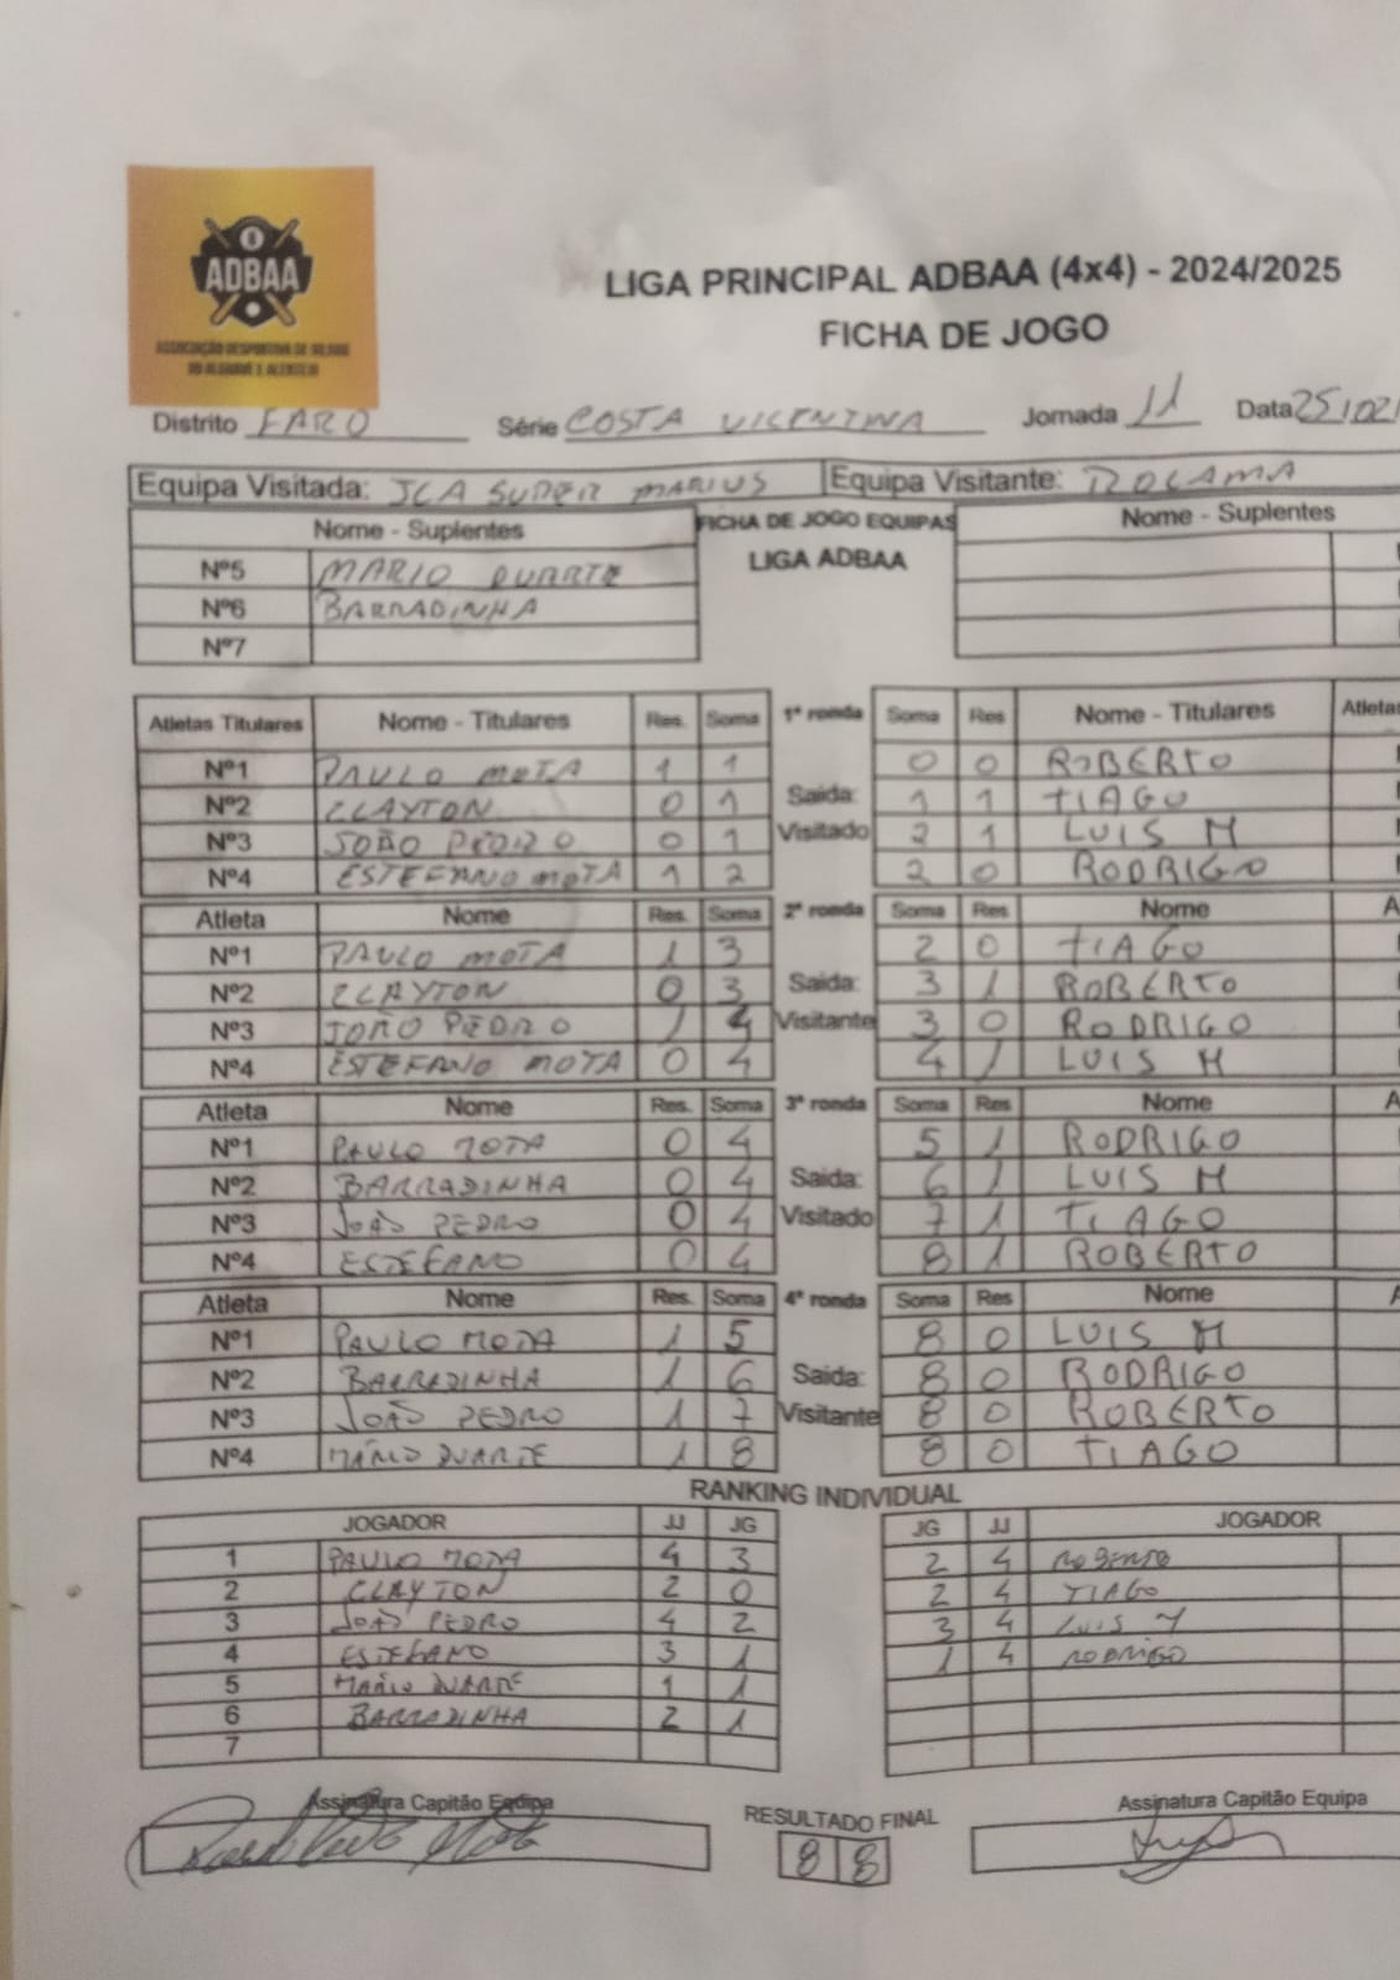 ADBAA
ASSOCIAÇÃO DESPORTIVA DE BILHAR
DO ALGARVE E ALENTEJO
LIGA PRINCIPAL ADBAA (4x4) - 2024/2025
FICHA DE JOGO
Distrito FARO Série COSTA VICENTINA Jornada 11 Data 25/02/
Equipa Visitada: JCA SUPER MARIUS Equipa Visitante: ROCAMA
Nome - Suplentes FICHA DE JOGO EQUIPAS Nome - Suplentes
Nº5 MARIO DUARTE LIGA ADBAA
Nº6 BARRADINHA
Nº7
Atletas Titulares Nome - Titulares Res. Soma 1ª ronda Soma Res Nome - Titulares Atletas
Nº1 PAULO MOTA 1 1 0 0 ROBERTO
Nº2 CLAYTON 0 1 Saida: 1 1 TIAGO
Nº3 JOÃO PEDRO 0 1 Visitado 2 1 LUIS M
Nº4 ESTEFANO MOTA 1 2 2 0 RODRIGO
Atleta Nome Res. Soma 2ª ronda Soma Res Nome A
Nº1 PAULO MOTA 1 3 2 0 TIAGO
Nº2 CLAYTON 0 3 Saida: 3 1 ROBERTO
Nº3 JOÃO PEDRO 1 4 Visitante 3 0 RODRIGO
Nº4 ESTEFANO MOTA 0 4 4 1 LUIS M
Atleta Nome Res. Soma 3ª ronda Soma Res Nome A
Nº1 PAULO MOTA 0 4 5 1 RODRIGO
Nº2 BARRADINHA 0 4 Saida: 6 1 LUIS M
Nº3 JOÃO PEDRO 0 4 Visitado 7 1 TIAGO
Nº4 ESTEFANO 0 4 8 1 ROBERTO
Atleta Nome Res. Soma 4ª ronda Soma Res Nome A
Nº1 PAULO MOTA 1 5 8 0 LUIS M
Nº2 BARRADINHA 1 6 Saida: 8 0 RODRIGO
Nº3 JOÃO PEDRO 1 7 Visitante 8 0 ROBERTO
Nº4 MÁRIO DUARTE 1 8 8 0 TIAGO
RANKING INDIVIDUAL
JOGADOR JJ JG JG JJ JOGADOR
1 PAULO MOTA 4 3 2 4 ROBERTO
2 CLAYTON 2 0 2 4 TIAGO
3 JOÃO PEDRO 4 2 3 4 LUIS M
4 ESTEFANO 3 1 1 4 RODRIGO
5 MÁRIO DUARTE 1 1
6 BARRADINHA 2 1
7
Assinatura Capitão Equipa RESULTADO FINAL Assinatura Capitão Equipa
8 8